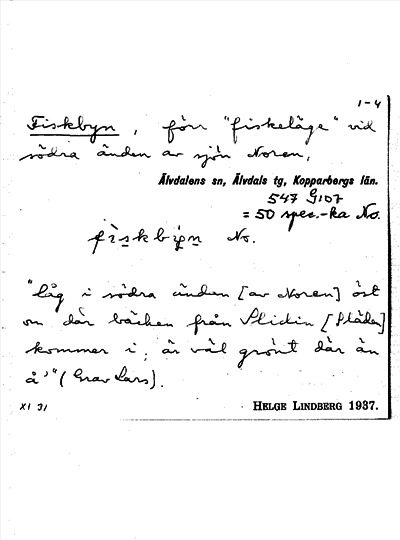 1-4
Fiskbyn, förr "fiskeläge" vid
södra änden av sjön Noren,
Älvdalens sn, Älvdals tg, Kopparbergs län.
547 G107
= 50 spec.-ka No.
fìskby̖n No.
"låg i södra änden [av Noren] öst
om där bäcken från Slidin [Släden]
kommer i; är väl grönt där än
å'" (Grav Lars).
XI 31
HELGE LINDBERG 1937.